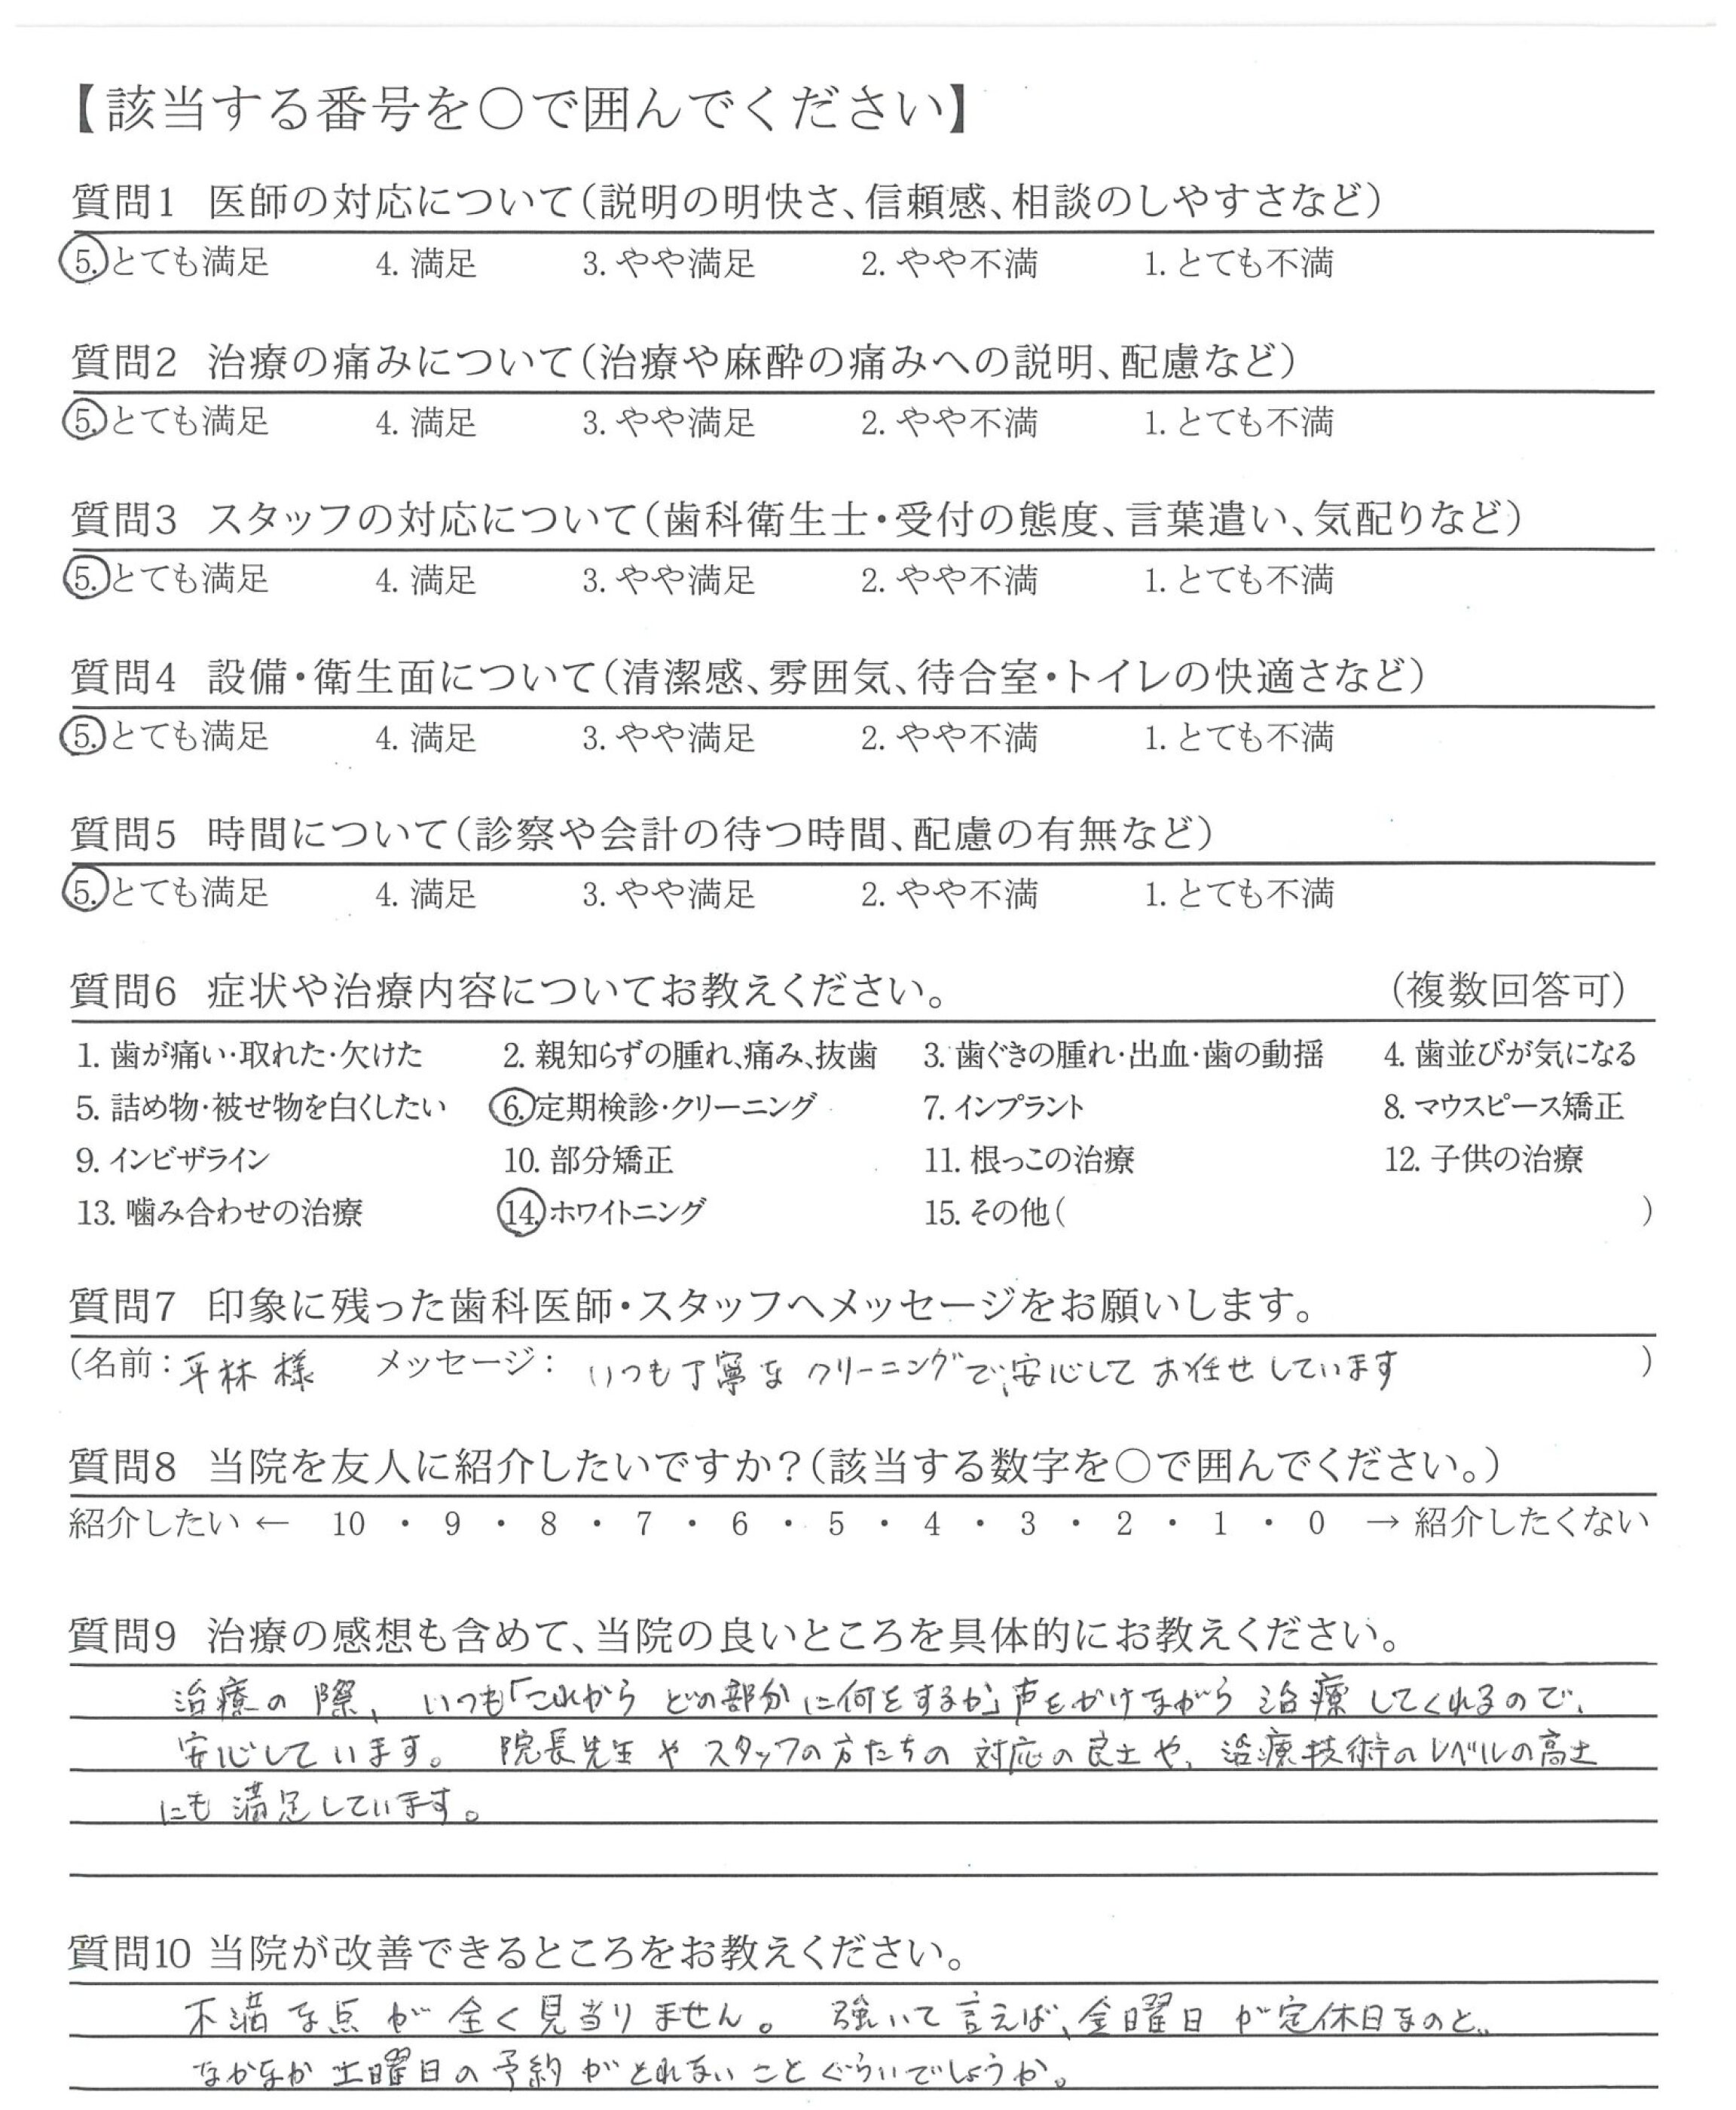 【該当する番号を○で囲んでください】
質問1 医師の対応について(説明の明快さ、信頼感、相談のしやすさなど)
5. とても満足 4. 満足 3. やや満足 2. やや不満 1. とても不満
質問2 治療の痛みについて(治療や麻酔の痛みへの説明、配慮など)
5. とても満足 4. 満足 3. やや満足 2. やや不満 1. とても不満
質問3 スタッフの対応について(歯科衛生士・受付の態度、言葉遣い、気配りなど)
5. とても満足 4. 満足 3. やや満足 2. やや不満 1. とても不満
質問4 設備・衛生面について(清潔感、雰囲気、待合室・トイレの快適さなど)
5. とても満足 4. 満足 3. やや満足 2. やや不満 1. とても不満
質問5 時間について(診察や会計の待つ時間、配慮の有無など)
5. とても満足 4. 満足 3. やや満足 2. やや不満 1. とても不満
質問6 症状や治療内容についてお教えください。 (複数回答可)
1. 歯が痛い・取れた・欠けた 2. 親知らずの腫れ、痛み、抜歯 3. 歯ぐきの腫れ・出血・歯の動揺 4. 歯並びが気になる
5. 詰め物・被せ物を白くしたい 6. 定期検診・クリーニング 7. インプラント 8. マウスピース矯正
9. インビザライン 10. 部分矯正 11. 根っこの治療 12. 子供の治療
13. 噛み合わせの治療 14. ホワイトニング 15. その他( )
質問7 印象に残った歯科医師・スタッフへメッセージをお願いします。
(名前：平林 様 メッセージ： いつも丁寧なクリーニングで、安心してお任せしています )
質問8 当院を友人に紹介したいですか？(該当する数字を○で囲んでください。)
紹介したい ← 10 ・ 9 ・ 8 ・ 7 ・ 6 ・ 5 ・ 4 ・ 3 ・ 2 ・ 1 ・ 0 → 紹介したくない
質問9 治療の感想も含めて、当院の良いところを具体的にお教えください。
治療の際、いつも「これからどの部分に何をするか」声をかけながら治療してくれるので、
安心しています。 院長先生やスタッフの方たちの対応の良さや、治療技術のレベルの高さ
にも満足しています。
質問10 当院が改善できるところをお教えください。
不満な点が全く見当りません。 強いて言えば、金曜日が定休日なのと、
なかなか土曜日の予約がとれないことぐらいでしょうか。